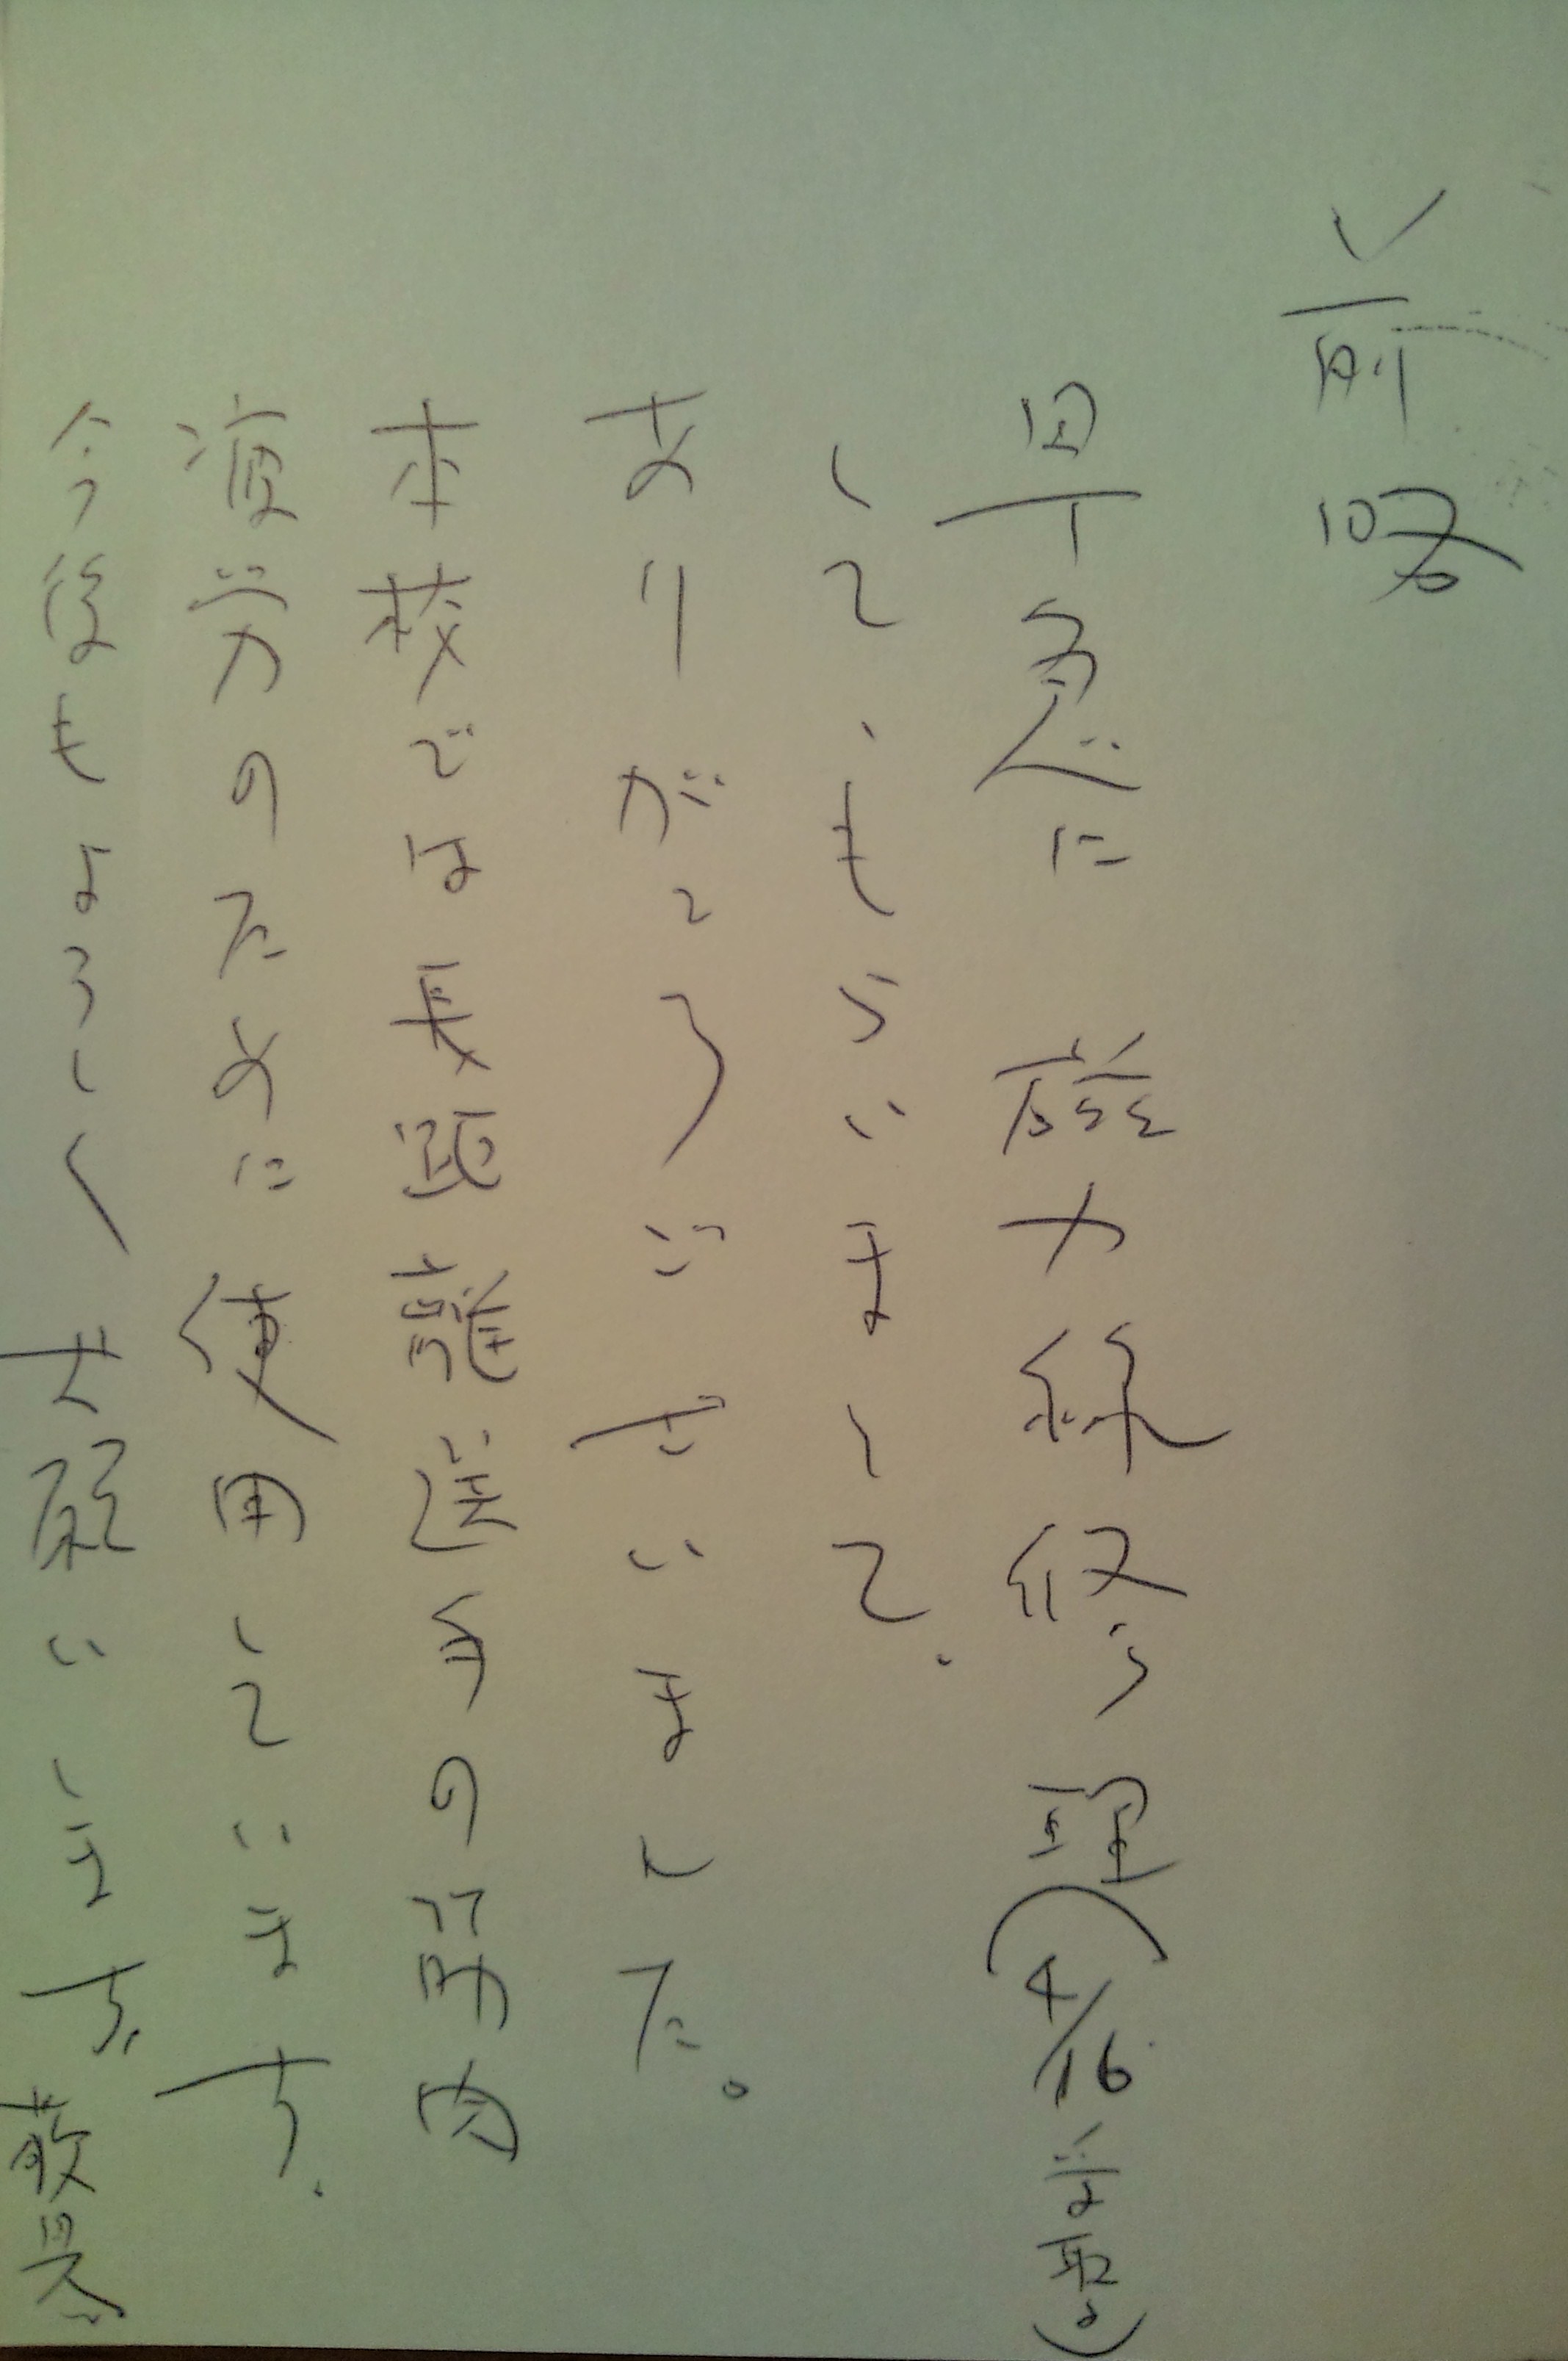 前略
早急に磁力線修理(4/16受取)
して、もらいまして、
ありがとうございました。
本校では長距離選手の筋肉
疲労のために使用しています。
今後もよろしくお願いします。敬具